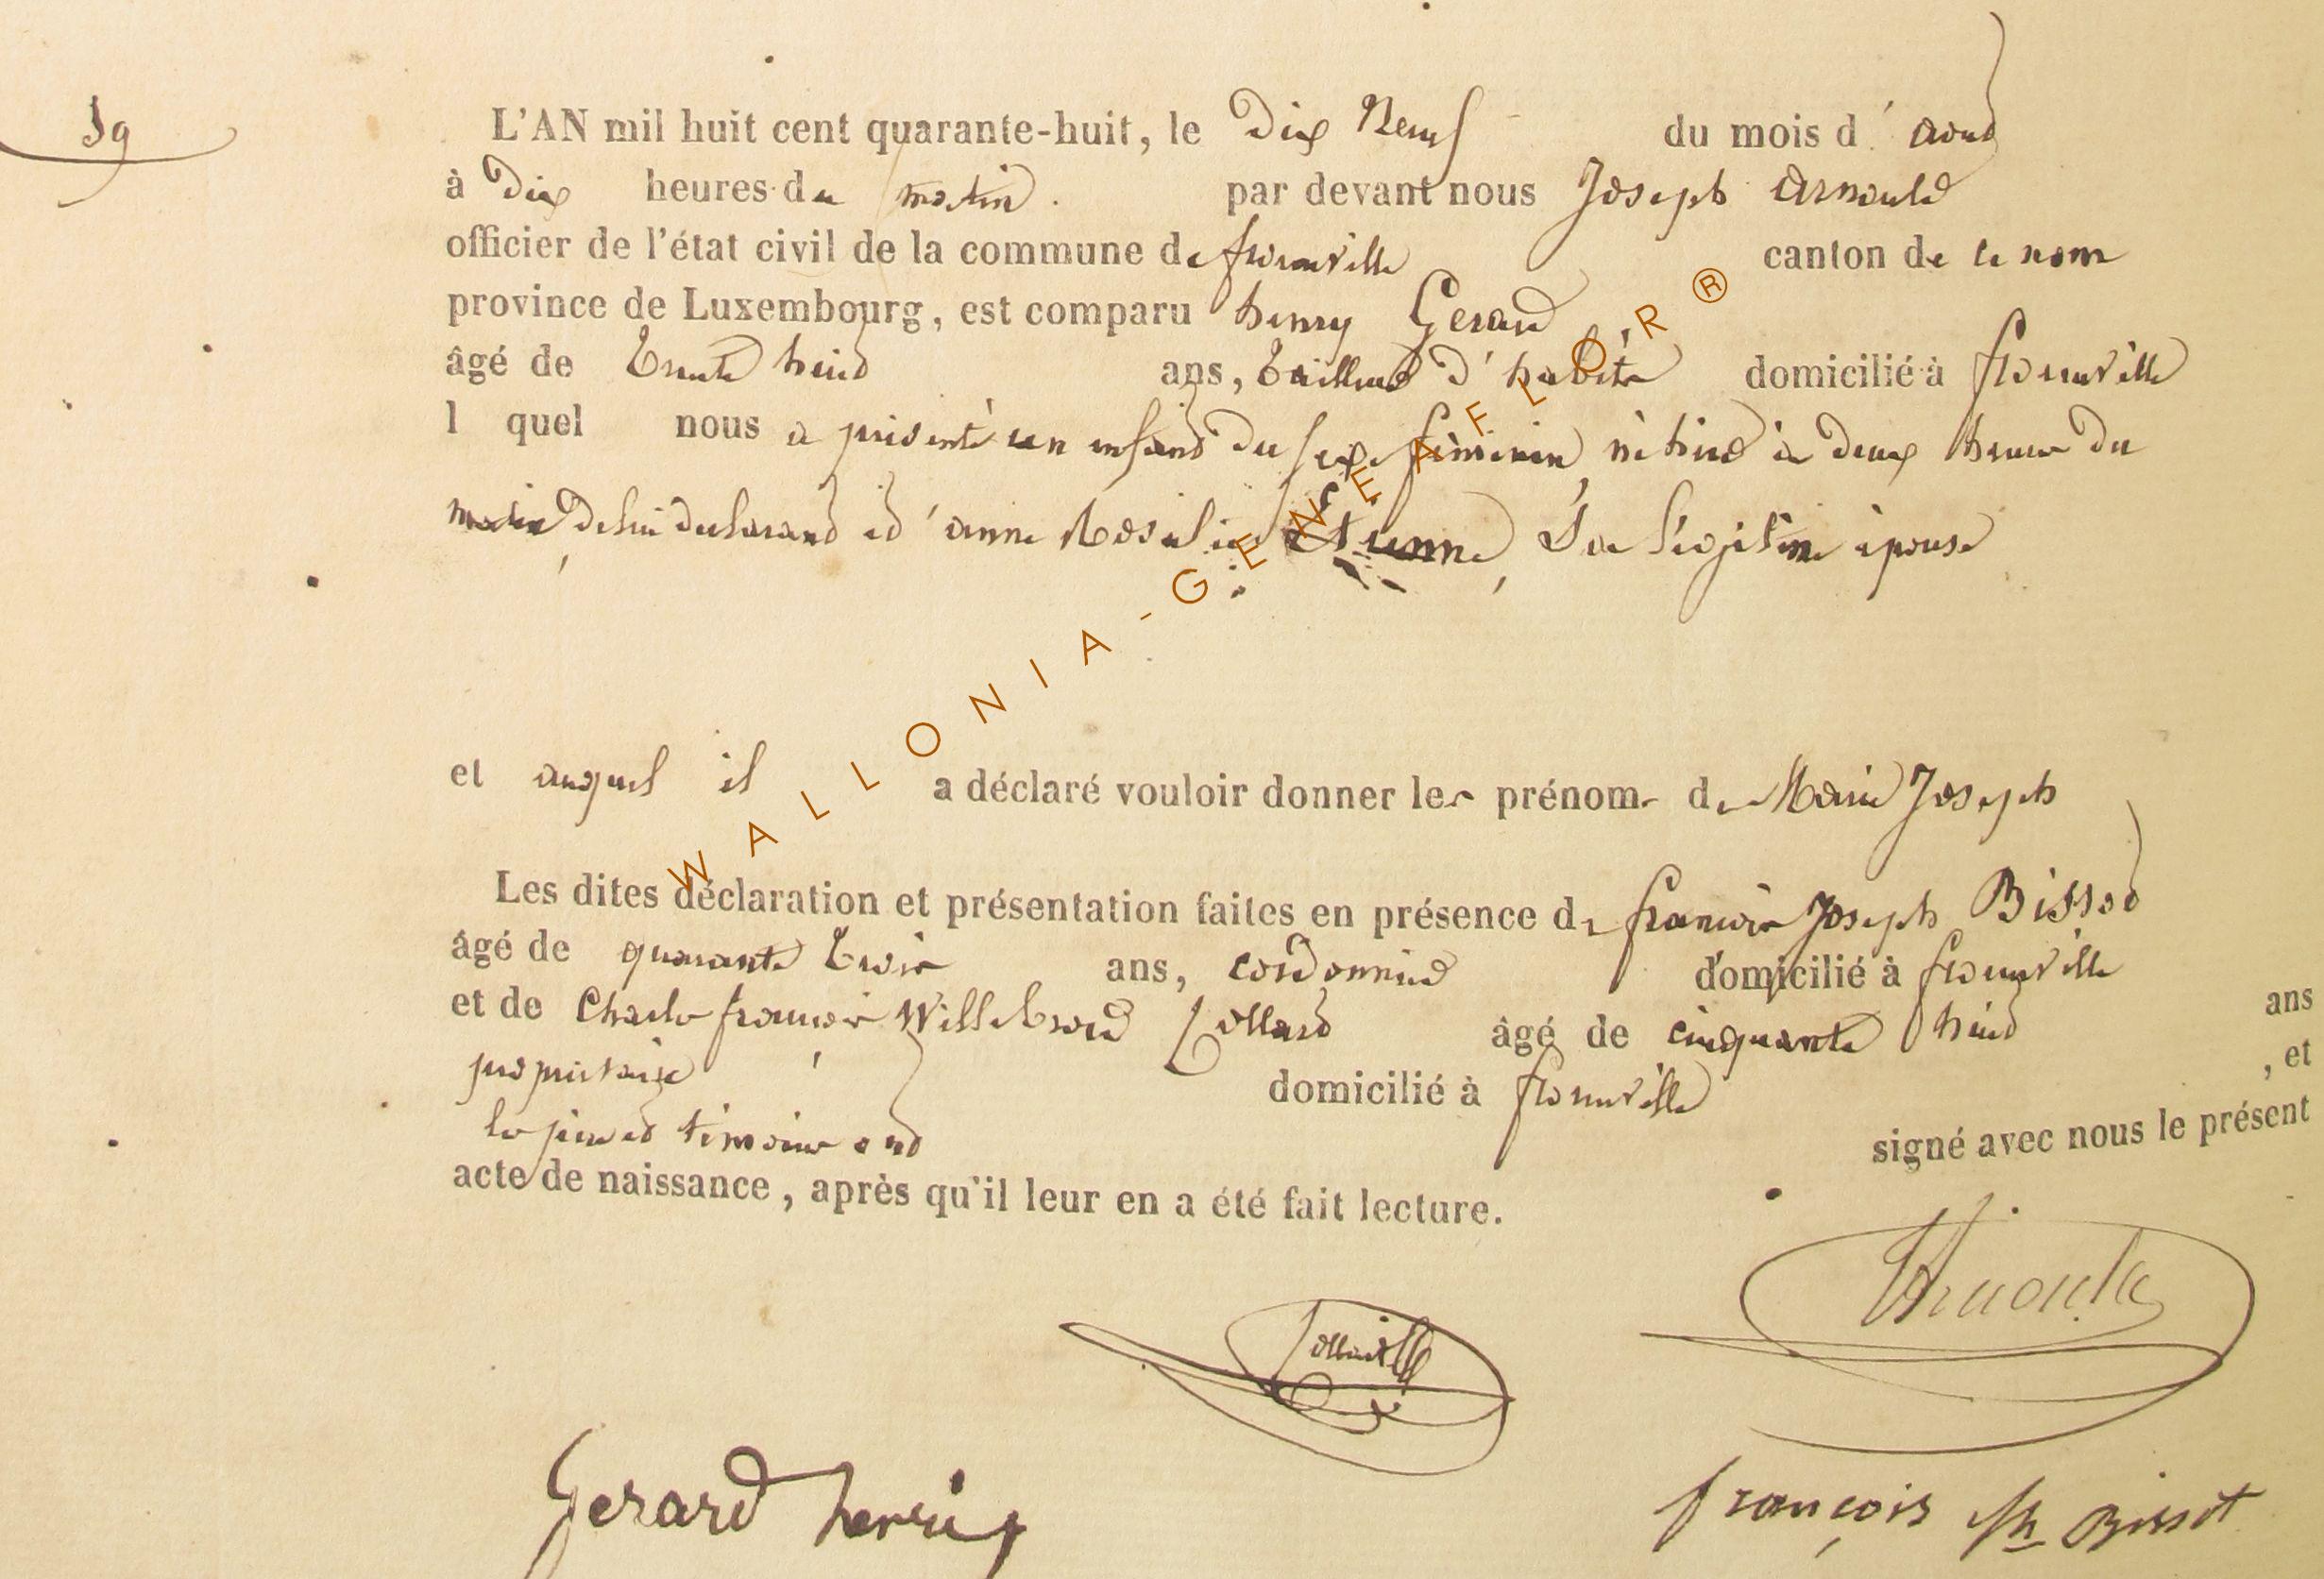 59
L'AN mil huit cent quarante-huit, le Dix Neuf du mois d'aout
à Dix heures du matin. par devant nous Joseph Arnould
officier de l'état civil de la commune de florenville canton de ce nom
province de Luxembourg, est comparu henry Gerard
âgé de Trente huit ans, Tailleur d'habits domicilié à florenville
l quel nous a présenté un enfant du sexe féminin, né hier à deux heures du
matin, de lui declarant et d'anne Rosalie Etienne, Sa légitime épouse
et auquel il a déclaré vouloir donner les prénoms de Marie Joseph
Les dites déclaration et présentation faites en présence de francois Joseph Bissot
âgé de quarante trois ans, cordonnier domicilié à florenville
et de Charles françois Willebrord Collard âgé de cinquante huit ans
propriétaire domicilié à florenville , et
les père et témoins ont signé avec nous le présent
acte de naissance, après qu'il leur en a été fait lecture.
Arnould
Gerard henriy
françois Jh Bissot
WALLONIA-GENEAFLOR®